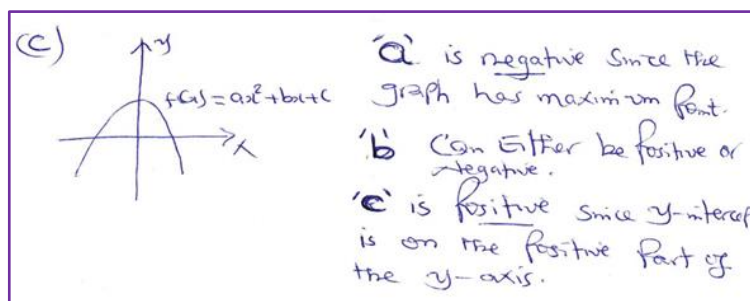 (c)
y
f(x) = ax² + bx + c
x
'a' is negative since the
graph has maximum point.
'b' can Either be positive or
negative.
'c' is positive since y-intercep
is on the positive part of
the y-axis.